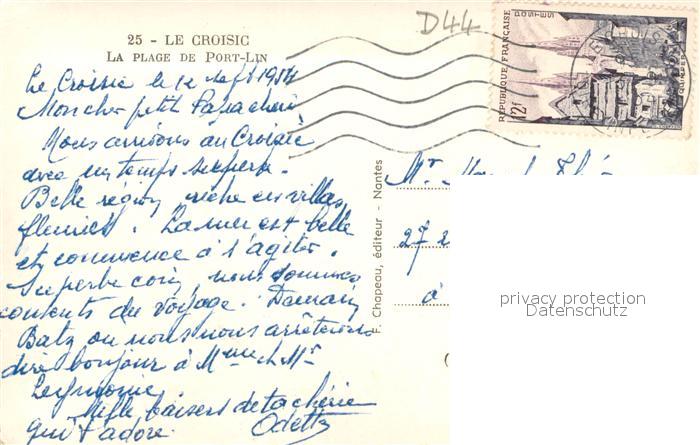 25 - LE CROISIC
LA PLAGE DE PORT-LIN
D44
RÉPUBLIQUE FRANÇAISE
POSTES
12f
Le Croisic le 12 sept 1954
Mon cher petit Papa chéri
Nous arrivons au Croisic
avec un temps superbe.
Belle région riche en villas
fleuries. La mer est belle
et commence à s'agiter.
Superbe coin, nous sommes
contents du voyage. Demain
Batz ou nous nous arrêterons
dire bonjour à Mme et Mr
Mille baisers de ta chérie
qui t'adore. Odette
F. Chapeau, éditeur - Nantes
Mr
27
à
privacy protection
Datenschutz